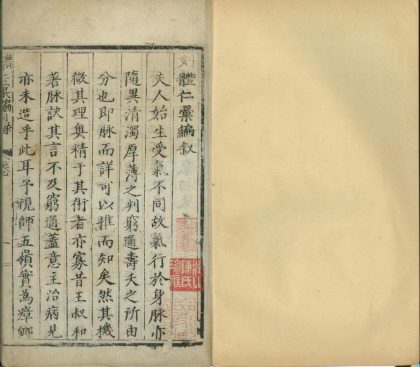 體仁彙編叙
夫人始生受氣不同故氣行於身脉亦
隨異清濁厚薄之判窮通壽夭之所由
分也即脉而詳可以推而知矣然其機
微其理奥精于其術者亦寡昔王叔和
著脉訣其言不及窮通蓋意主治病見
亦未造乎此耳予視師五領實爲瘴鄉